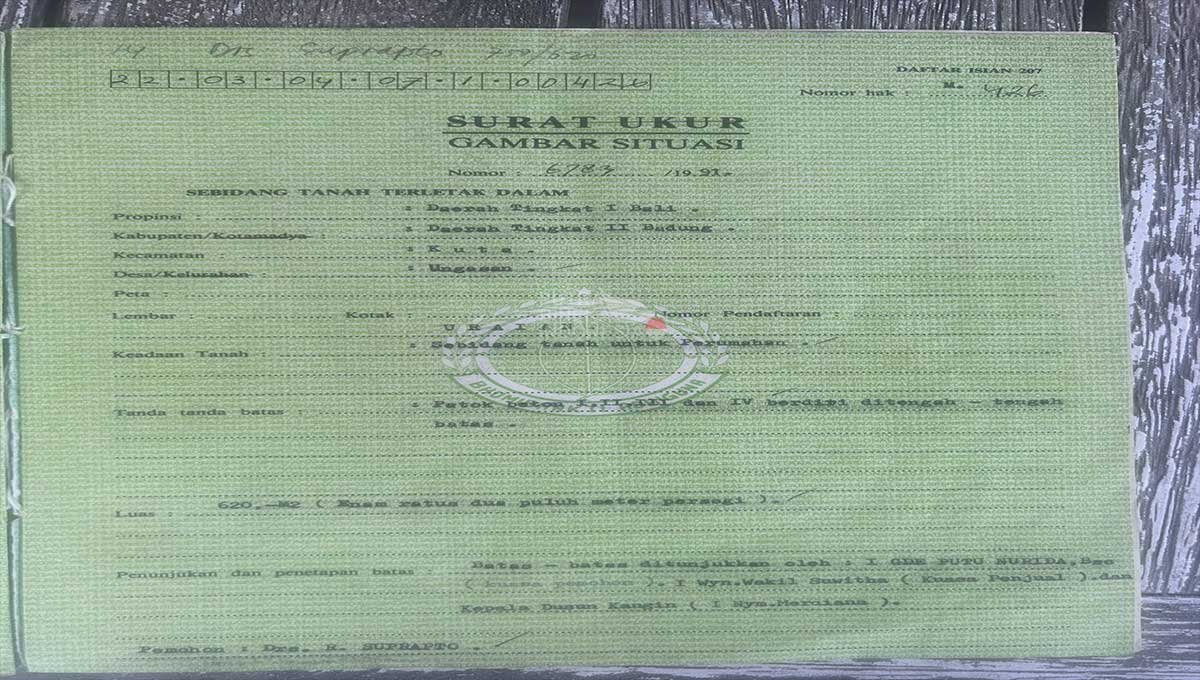 Drs Suprapto 750/620
22.03.04.07.1.00426
DAFTAR ISIAN 207
Nomor hak : M. 426
SURAT UKUR
GAMBAR SITUASI
Nomor : 6783 /19.91.-
SEBIDANG TANAH TERLETAK DALAM
Propinsi : : Daerah Tingkat I Bali .
Kabupaten/Kotamadya : : Daerah Tingkat II Badung .
Kecamatan : : K u t a .
Desa/Kelurahan : : Ungasan .
Peta :
Lembar : Kotak : Nomor Pendaftaran :
U R A I A N
Keadaan Tanah : : Sebidang tanah untuk Perumahan .
Tanda tanda batas : Patok batas I,II,III dan IV berdiri ditengah - tengah
batas .
Luas : 620,-M2 ( Enam ratus dua puluh meter persegi ).
Penunjukan dan penetapan batas : Batas - batas ditunjukkan oleh : I GDE PUTU
( kuasa pemohon ). I Wyn.Wakil Suwitha ( Kuasa Penjual ).dan
Kepala Dusun Kangin ( I Nym.Merdiana ).
Pemohon : Drs. R. SUPRAPTO .